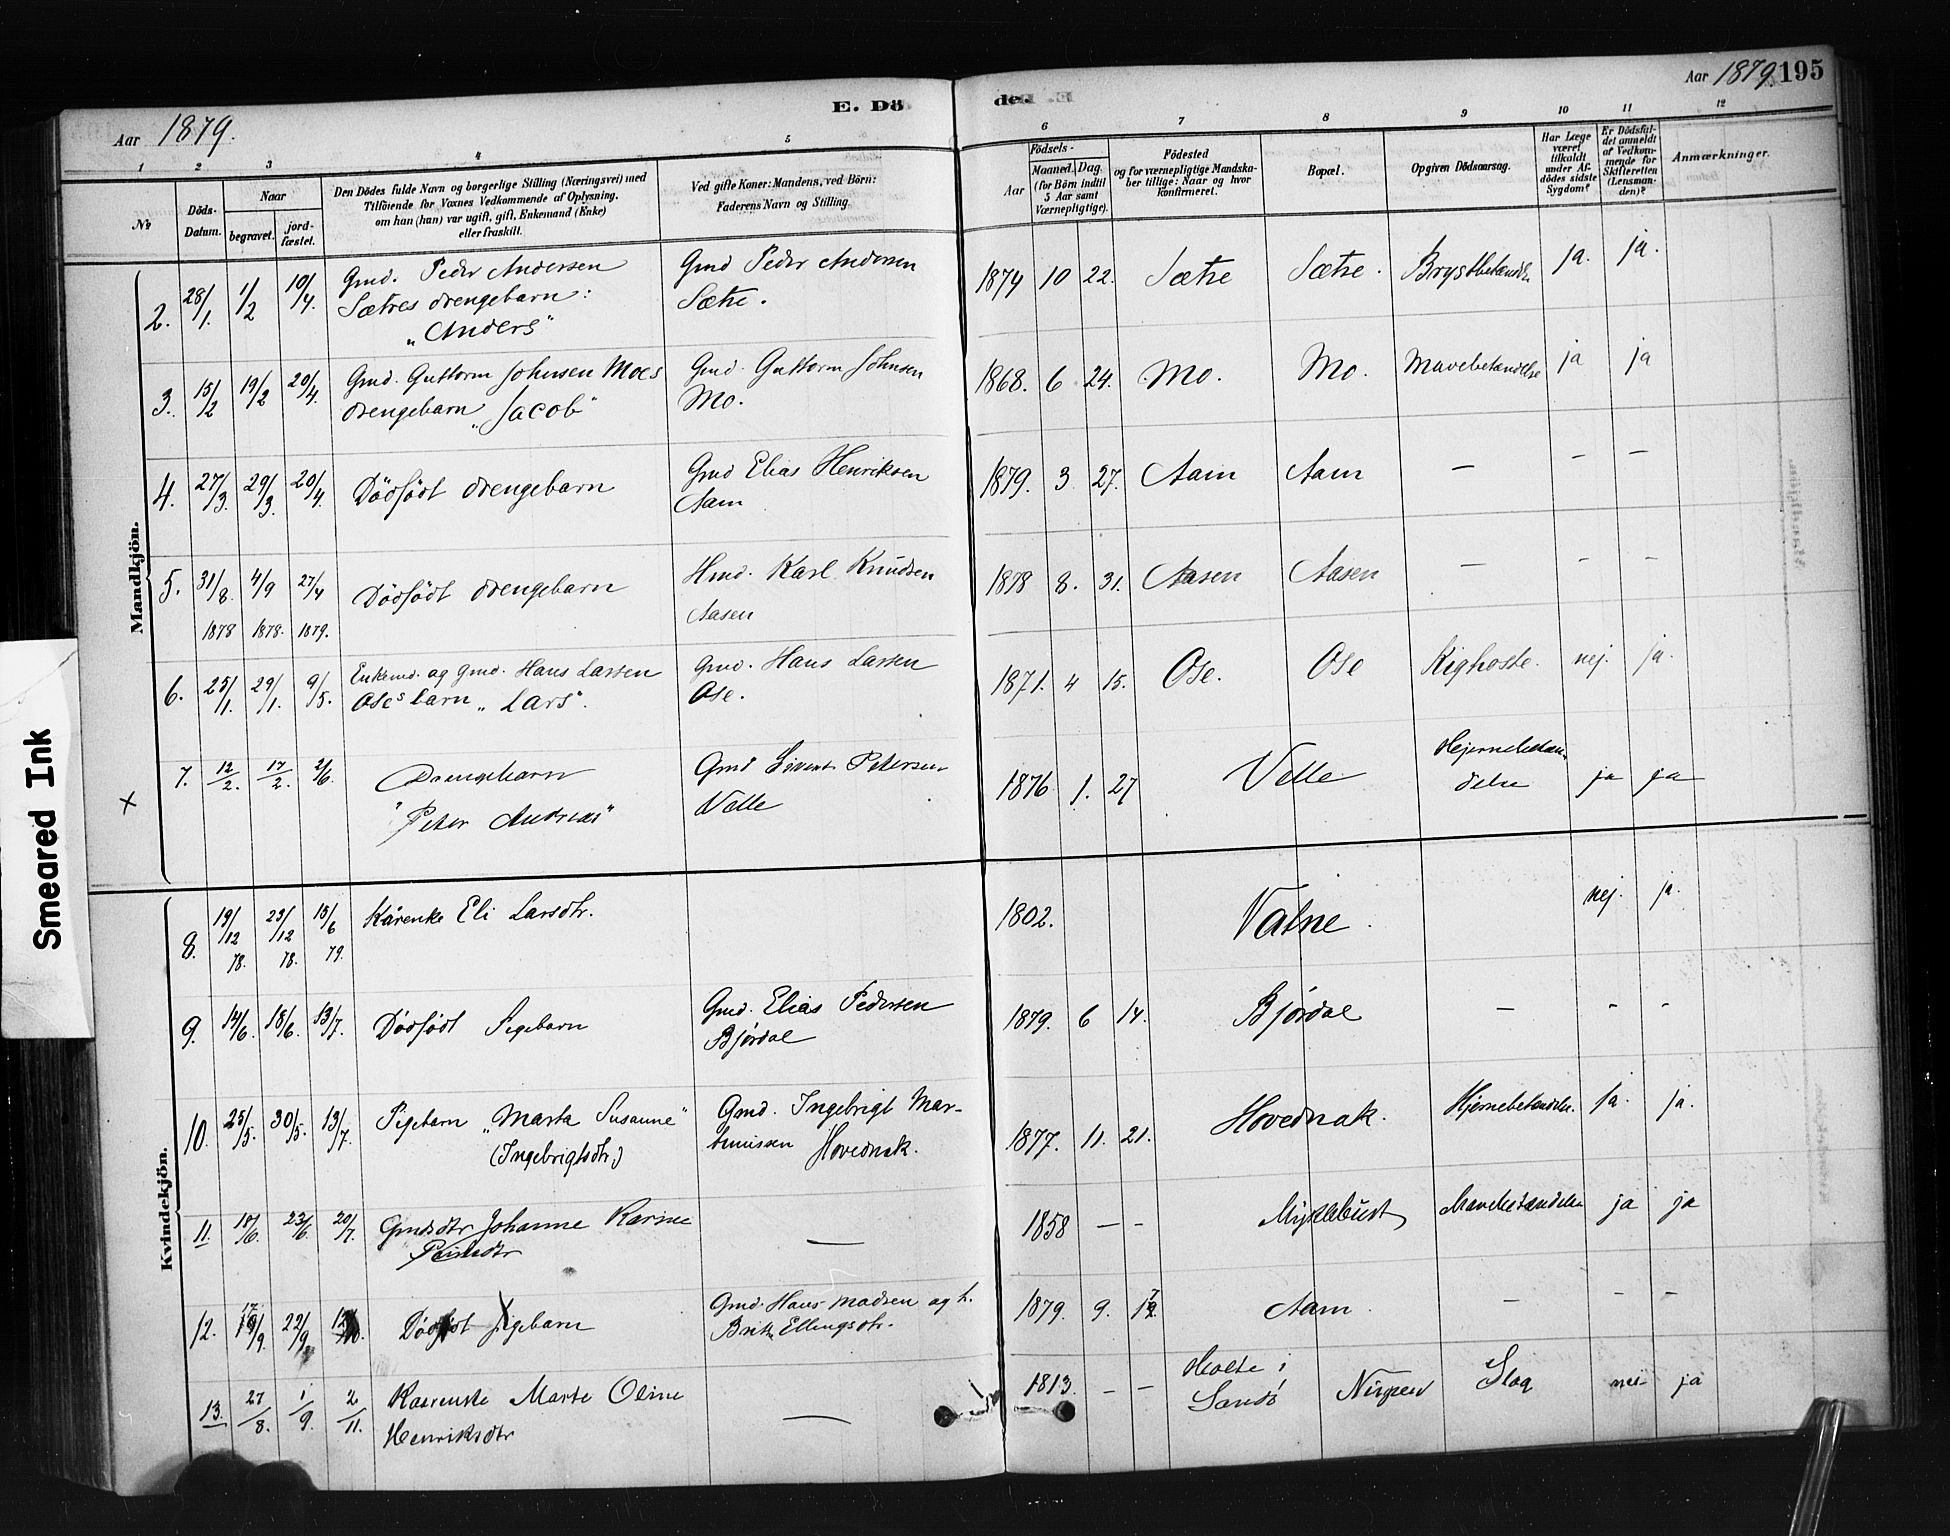 Aar 1879.
E. Dö
1 2 3 4 5
No
Döds-Datum.
Naar
begravet.
jord-fæstet.
Den Dödes fulde Navn og borgerlige Stilling (Næringsvei) med
Tilföiende for Voxnes Vedkommende af Oplysning,
om han (hun) var ugift, gift, Enkemand (Enke)
eller fraskilt.
Ved gifte Koner: Mandens, ved Börn:
Faderens Navn og Stilling.
de.
Aar 1879 195
6 7 8 9 10 11 12
Födsels-
Aar
Maaned. Dag.
(for Börn indtil
5 Aar samt
Værnepligtige).
Födested
og for værnepligtige Mandska-
ber tillige: Naar og hvor
konfirmeret.
Bopæl.
Opgiven Dödsaarsag.
Har Læge
været
tilkaldt
under Af-
dödes sidste
Sygdom?
Er Dödsfal-
det anmeldt
af Vedkom-
mende for
Skifteretten
(Lensman-
den)?
Anmærkninger.
Mandkjön.
2. 28/1. 1/2 10/4. Gmd. Peder Andersen Gmd Peder Andersen 1874 10 22. Sætre Sætre. Brystbetændelse ja. ja.
Sætres drengebarn: Sætre.
"Anders"
3. 15/2 19/2 20/4. Gmd. Guttorm Johnsen Moes Gmd. Guttorm Johnsen 1868. 6 24. Mo. Mo. Mavebetændelse ja ja
drengebarn "Jacob" Mo.
4. 27/3. 29/3. 20/4. Dödfödt drengebarn Gmd Elias Henriksen 1879. 3 27. Aam Aam — — —
Aam
5. 31/8. 4/9 27/4 Dödfödt drengebarn Hmd. Karl Knudsen 1878 8. 31. Aasen Aasen — – –
1878 1878. 1879. Aasen
6. 25/1. 29/1. 9/5. Enkemd. og Gmd. Hans Larsen Gmd. Hans Larsen 1871. 4 15. Ose. Ose Kighoste. nej. ja.
Oses barn "Lars". Ose.
x 7. 12/2. 17/2. 2/6. Drengebarn Gmd Sivert Petersen 1876 1. 27 Velle Hjernebetæn- ja ja
"Peter Andreas" Velle delse
Kvindekjön.
8. 19/12 78. 23/12 78. 15/6 79. Kårenke Eli Larsdtr. 1802. Vatne. nej. ja.
9. 14/6. 18/6. 13/7. Dödfödt Pigebarn Gmd. Elias Pedersen 1879. 6 14. Bjørdal — – –
Bjørdal
10. 25/5. 30/5. 13/7. Pigebarn "Marta Susanne" Gmd. Ingebrigt Mar- 1877. 11. 21. Hovednak. Hjernebetændelse. ja. ja.
(Ingebrigtsdtr.) Hovednak.
11. 18/6. 23/6. 20/7. Gmdsdtr Johanne Karine — 1858 — – Myklebust Mavebetændelse ja ja
12. 22/9. Dödfödt Pigebarn Gmd. Hans Madsen og h. 1879. 9. Aam. — – –
Ellingsdtr.
13. 27/8. 1/9. 2/11. Marte Oline — 1813. – – Holte i Slag nei ja
Henriksdtr Sandö
Smeared Ink